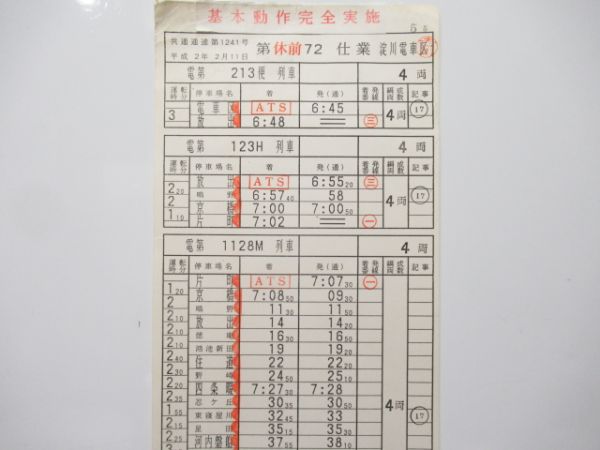 基本動作完全実施
5
共通通達第1241号
平成 2年 2月11日
第休前72 仕業 淀川電車区
電第 213便 列車 4両
運転時分 停車場名 着 発(通) 着発番線 編成両数 記事
3 電車 ATS 6:45 4両 17
放出 6:48 三
電第 123H 列車 4両
運転時分 停車場名 着 発(通) 着発番線 編成両数 記事
放出 ATS 6:55 20 三
2 20 鴫野 6:57 40 58
2 京橋 7:00 7:00 50
1 10 片町 7:02 一
4両 17
電第 1128M 列車 4両
運転時分 停車場名 着 発(通) 着発番線 編成両数 記事
片町 ATS 7:07 30 一
1 20 京橋 7:08 50 09 30
2 鴫野 11 30 11 50
2 10 放出 14 14 20
2 10 徳庵 16 30 16 50
2 10 鴻池新田 19 19 20
2 40 住道 22 22 20
2 30 野崎 24 50 25 10
2 20 四条畷 7:27 30 7:28
2 30 忍ケ丘 30 35 30 50
1 55 東寝屋川 32 45 33
2 15 星田 35 15 35 30
2 25 河内磐船 37 55 38 10
4両 17